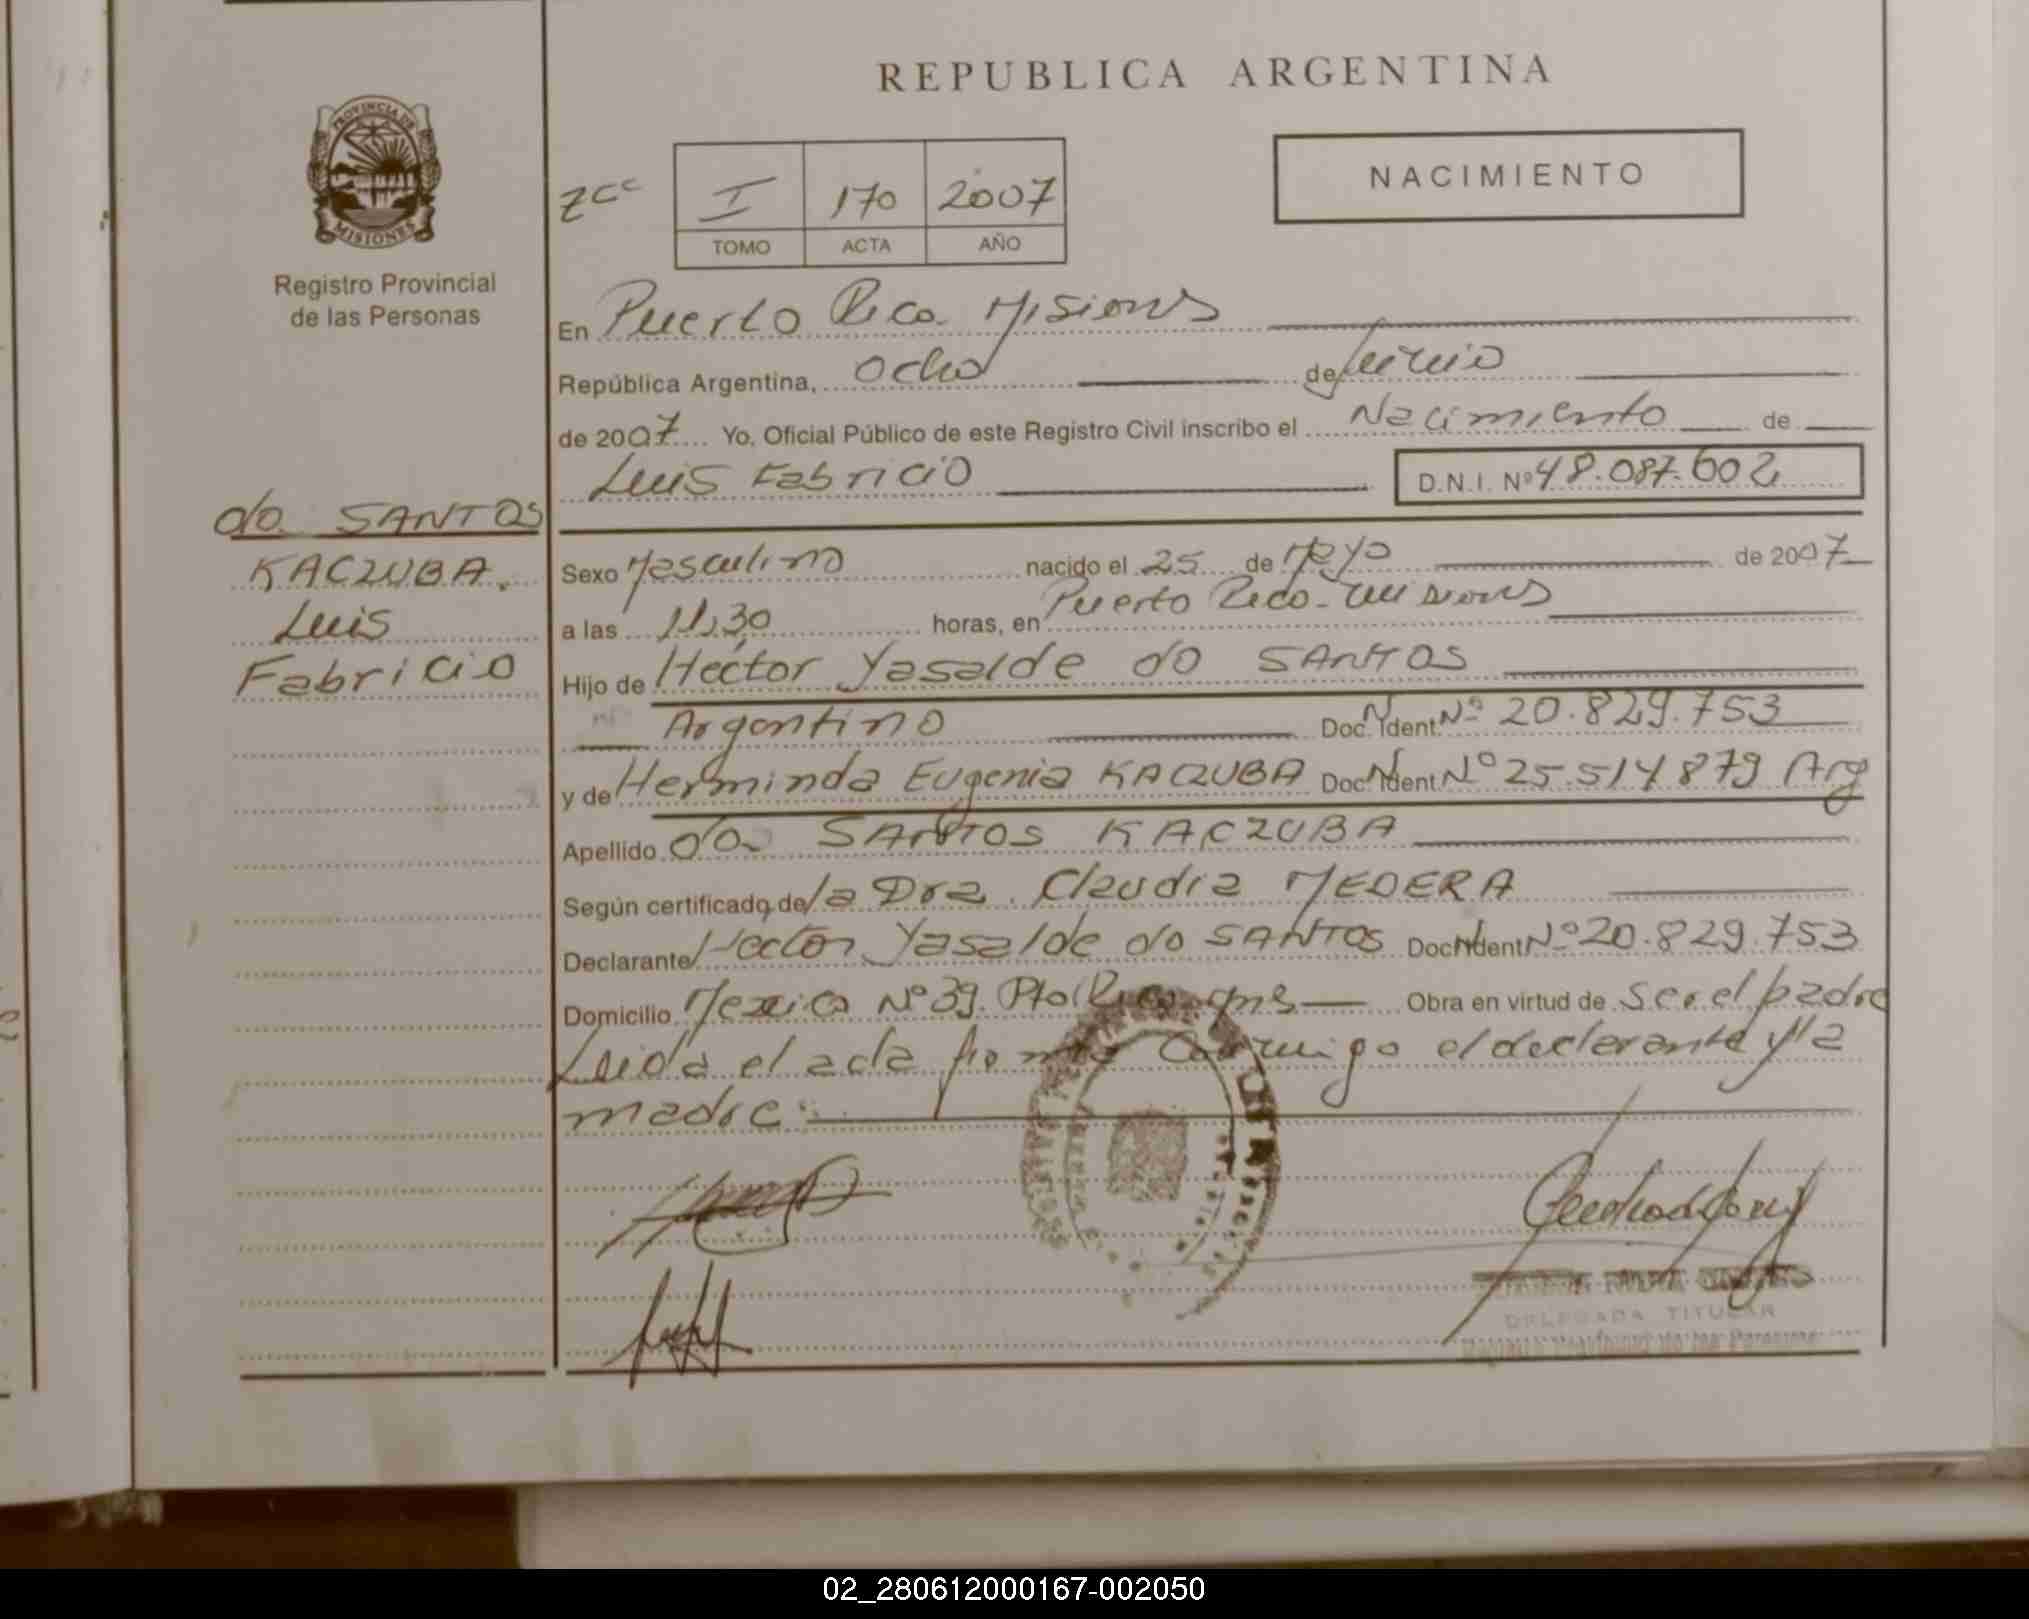 REPUBLICA ARGENTINA
PROVINCIA DE
MISIONES
Registro Provincial
de las Personas
NACIMIENTO
I 170 2007
TOMO ACTA AÑO
En Puerto Rico Misiones
República Argentina, Ocho de Junio
de 2007 Yo, Oficial Público de este Registro Civil inscribo el Nacimiento de
Luis Fabricio D.N.I. Nº 48.087.602
do SANTOS
KACZUBA.
Luis
Fabricio
Sexo Masculino nacido el 25 de Mayo de 2007
a las 11,30 horas, en Puerto Rico - Misiones
Hijo de Hector Yasalde do SANTOS
Argentino Doc. Ident. Nº 20.829.753
y de Herminda Eugenia KACZUBA Doc. Ident. Nº 25.514.879 Arg
Apellido do SANTOS KACZUBA
Según certificado de la Dra. Claudia MEDERA
Declarante Hector Yasalde do SANTOS Doc. Ident. Nº 20.829.753
Domicilio Mexico Nº 39. Pto Rico Obra en virtud de ser el padre
Leida el acta firma conmigo el declarante y la
madre.
DELEGADA TITULAR
Registro Provincial de las Personas
02_280612000167-002050